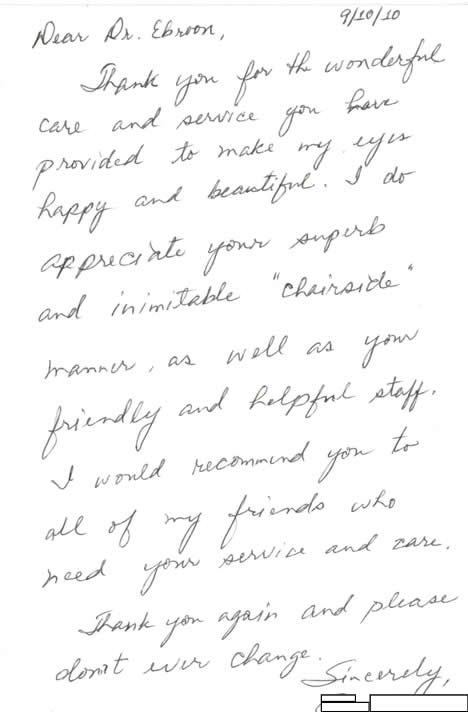 9/10/10
Dear Dr. Ebroon,
Thank you for the wonderful
care and service you have
provided to make my eyes
happy and beautiful. I do
appreciate your superb
and inimitable "chairside"
manner, as well as your
friendly and helpful staff.
I would recommend you to
all of my friends who
need your service and care.
Thank you again and please
don't ever change.
Sincerely,